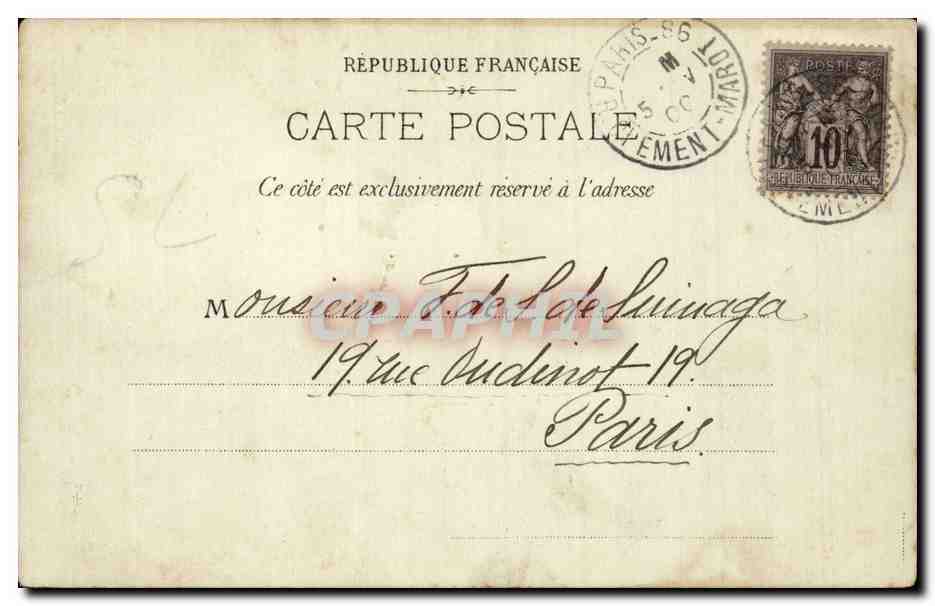 RÉPUBLIQUE FRANÇAISE
CARTE POSTALE
Ce côté est exclusivement réservé à l'adresse
PARIS_86
R. CLEMENT-MAROT
5
00
POSTE
10
REPUBLIQUE FRANÇAISE
Monsieur F. de S. de Luinaga
19, rue Oudinot 19.
Paris.
CPAPHIL